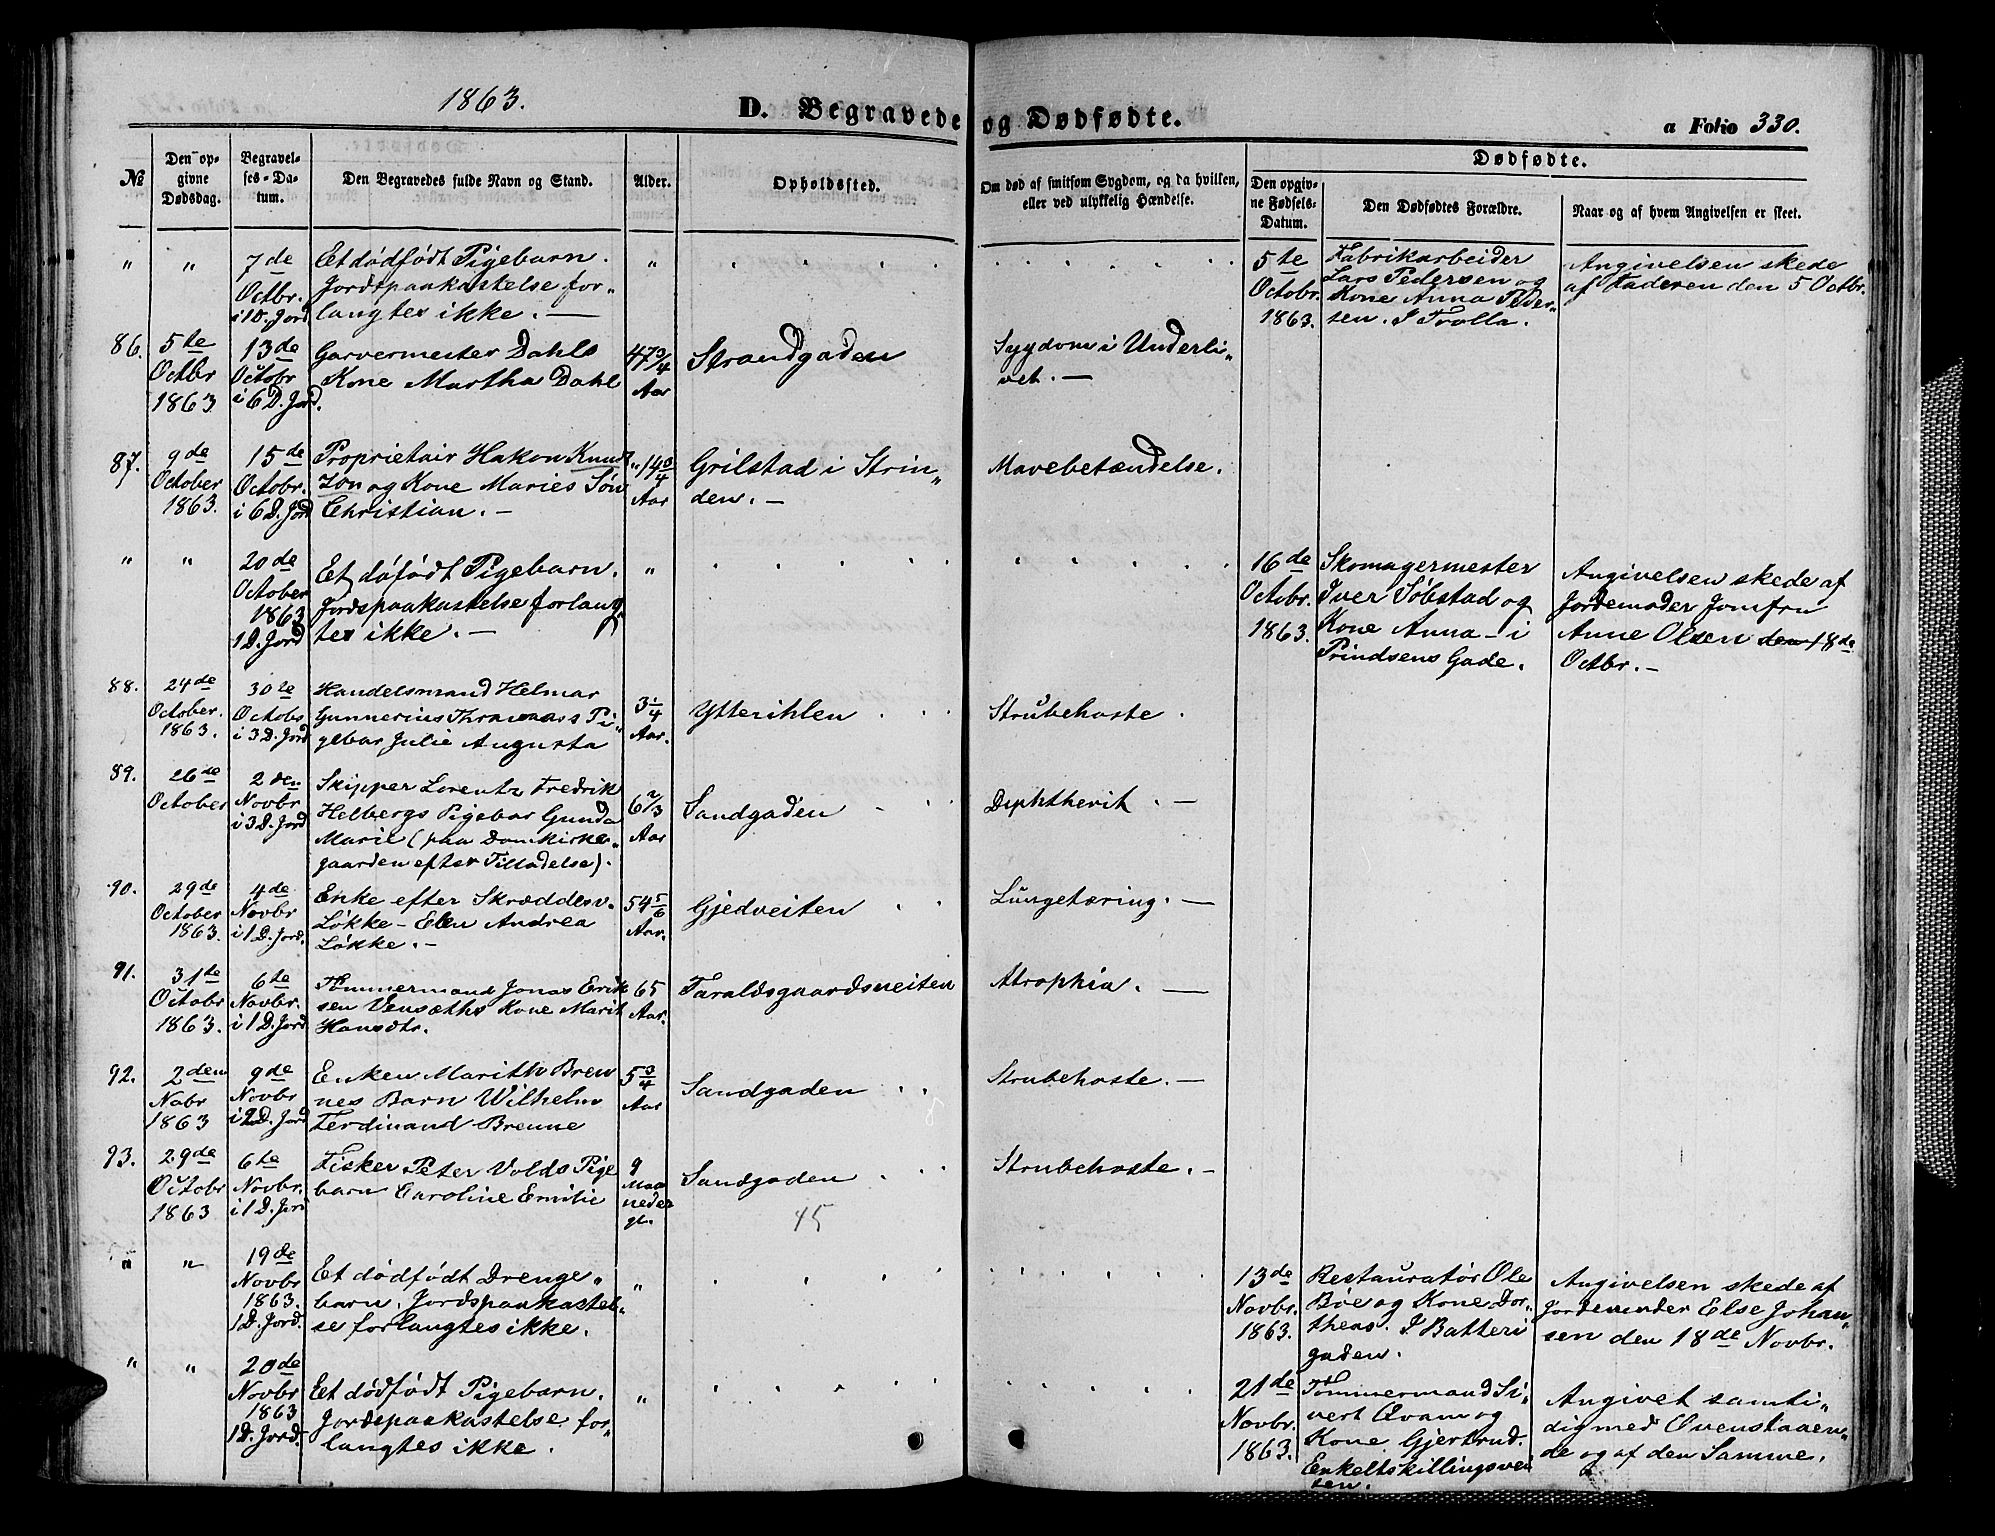 1863.
D. Begravede og Dødfødte.
a Folio 330.
№
Den opgivne Dødsdag.
Begravelses-Datum.
Den Begravedes fulde Navn og Stand.
Alder.
Opholdssted.
Om død af smitsom Sygdom, og da hvilken, eller ved ulykkelig Hændelse.
Dødfødte.
Den opgivne Fødsels-Datum.
Den Dødfødtes Forældre.
Naar og af hvem Angivelsen er skeet.
" " 7de Octbr. i 1D. Jord
Et dødfødt Pigebarn.
Jordspaakastelse for„
langtes ikke. —
"
5te Octobr. 1863.
Fabrikarbeider
Lars Pedersen og
Kone Anna Peder„
sen. I Trolla.
Angivelsen skede
af Faderen den 5 Octbr.
86. 5te Octbr 1863
13de Octobr i 6 D. Jord.
Garvermester Dahls
Kone Martha Dahl
47 3/4 Aar
Strandgaden
Sygdom i Underli„
vet. —
87. 9de October 1863.
15de Octobr. i 6 D. Jord
Proprietair Hakon Knud„
zon og Kone Maries Søn
Christian. —
14 3/4 Aar
Grilstad i Strin„
den. —
Mavebetændelse.
" " 20de October 1863 1 D. Jord
Et døfødt Pigebarn.
Jordspaakastelse forlang„
tes ikke. —
"
16de Octobr. 1863.
Skomagermester
Iver Søbstad og
Kone Anna – i
Prindsens Gade.
Angivelsen skede af
Jordemoder Jomfru
Anne Olsen den 18de
Octbr. —
88. 24de October. 1863.
30te Octobr i 3 D. Jord
Handelsmand Helmar
Gunnerius Pi„
gebar Julie Augusta
3 1/4 Aar.
Ytterihlen
Strubehoste.
89. 26de October
2den Novbr i 3 D. Jord
Skipper Lorentz Fredrik
Helbergs Pigebar Gunda
Marie (paa Domkirke„
gaarden efter Tilladelse).
6 2/3 Aar
Sandgaden
Diphtherit. —
90. 29de October 1863.
4de Novbr i 1 D. Jord.
Enke efter Skrædder
Løkke – Elen Andrea
Løkke. –
54 5/6 Aar.
Gjedveiten
Lungetæring. —
91. 31te Octobr 1863.
6te Novbr. i 1 D. Jord
Tømmermand Jonas Erik
sen Vensæths Kone Marit
Hansdtr.
65 Aar.
Taraldsgaardsveiten
Atrophia. —
92. 2den Nobr 1863
9de Novbr i 2 D. Jord
Enken Marith Bren
nes Barn Wilhelm
Ferdinand Brenne
5 3/4 Aar
Sandgaden
Strubehoste. —
93. 29de Octobr 1863
6te Novbr. i 1 D. Jord
Fisker Peter Volds Pige
barn Caroline Emilie
9 Maa neder gl.
Sandgaden
Strubehoste. —
45
" " 19de Novbr 1863. 1 D. Jord.
Et dødfødt Drenge„
barn. Jordspaakastel„
se forlangtes ikke.
"
13de Novbr. 1863.
Restauratør Ole
Bøe og Kone Dor„
theas. I Batteri
gaden.
Angivelsen skede af
Jordemoder Else Johan„
sen den 18de Novbr.
" " 20de Novbr 1863 1 D. Jord.
Et dødfødt Pigebarn.
Jordspaakastelse for„
langtes ikke.
"
21de Novbr. 1863.
Tømmermand Si„
vert Qvam og
Kone Gjertrud.
Enkeltskillingsvei
ten.
Angivet samti„
dig med Ovenstaaen„
de og af den Samme.